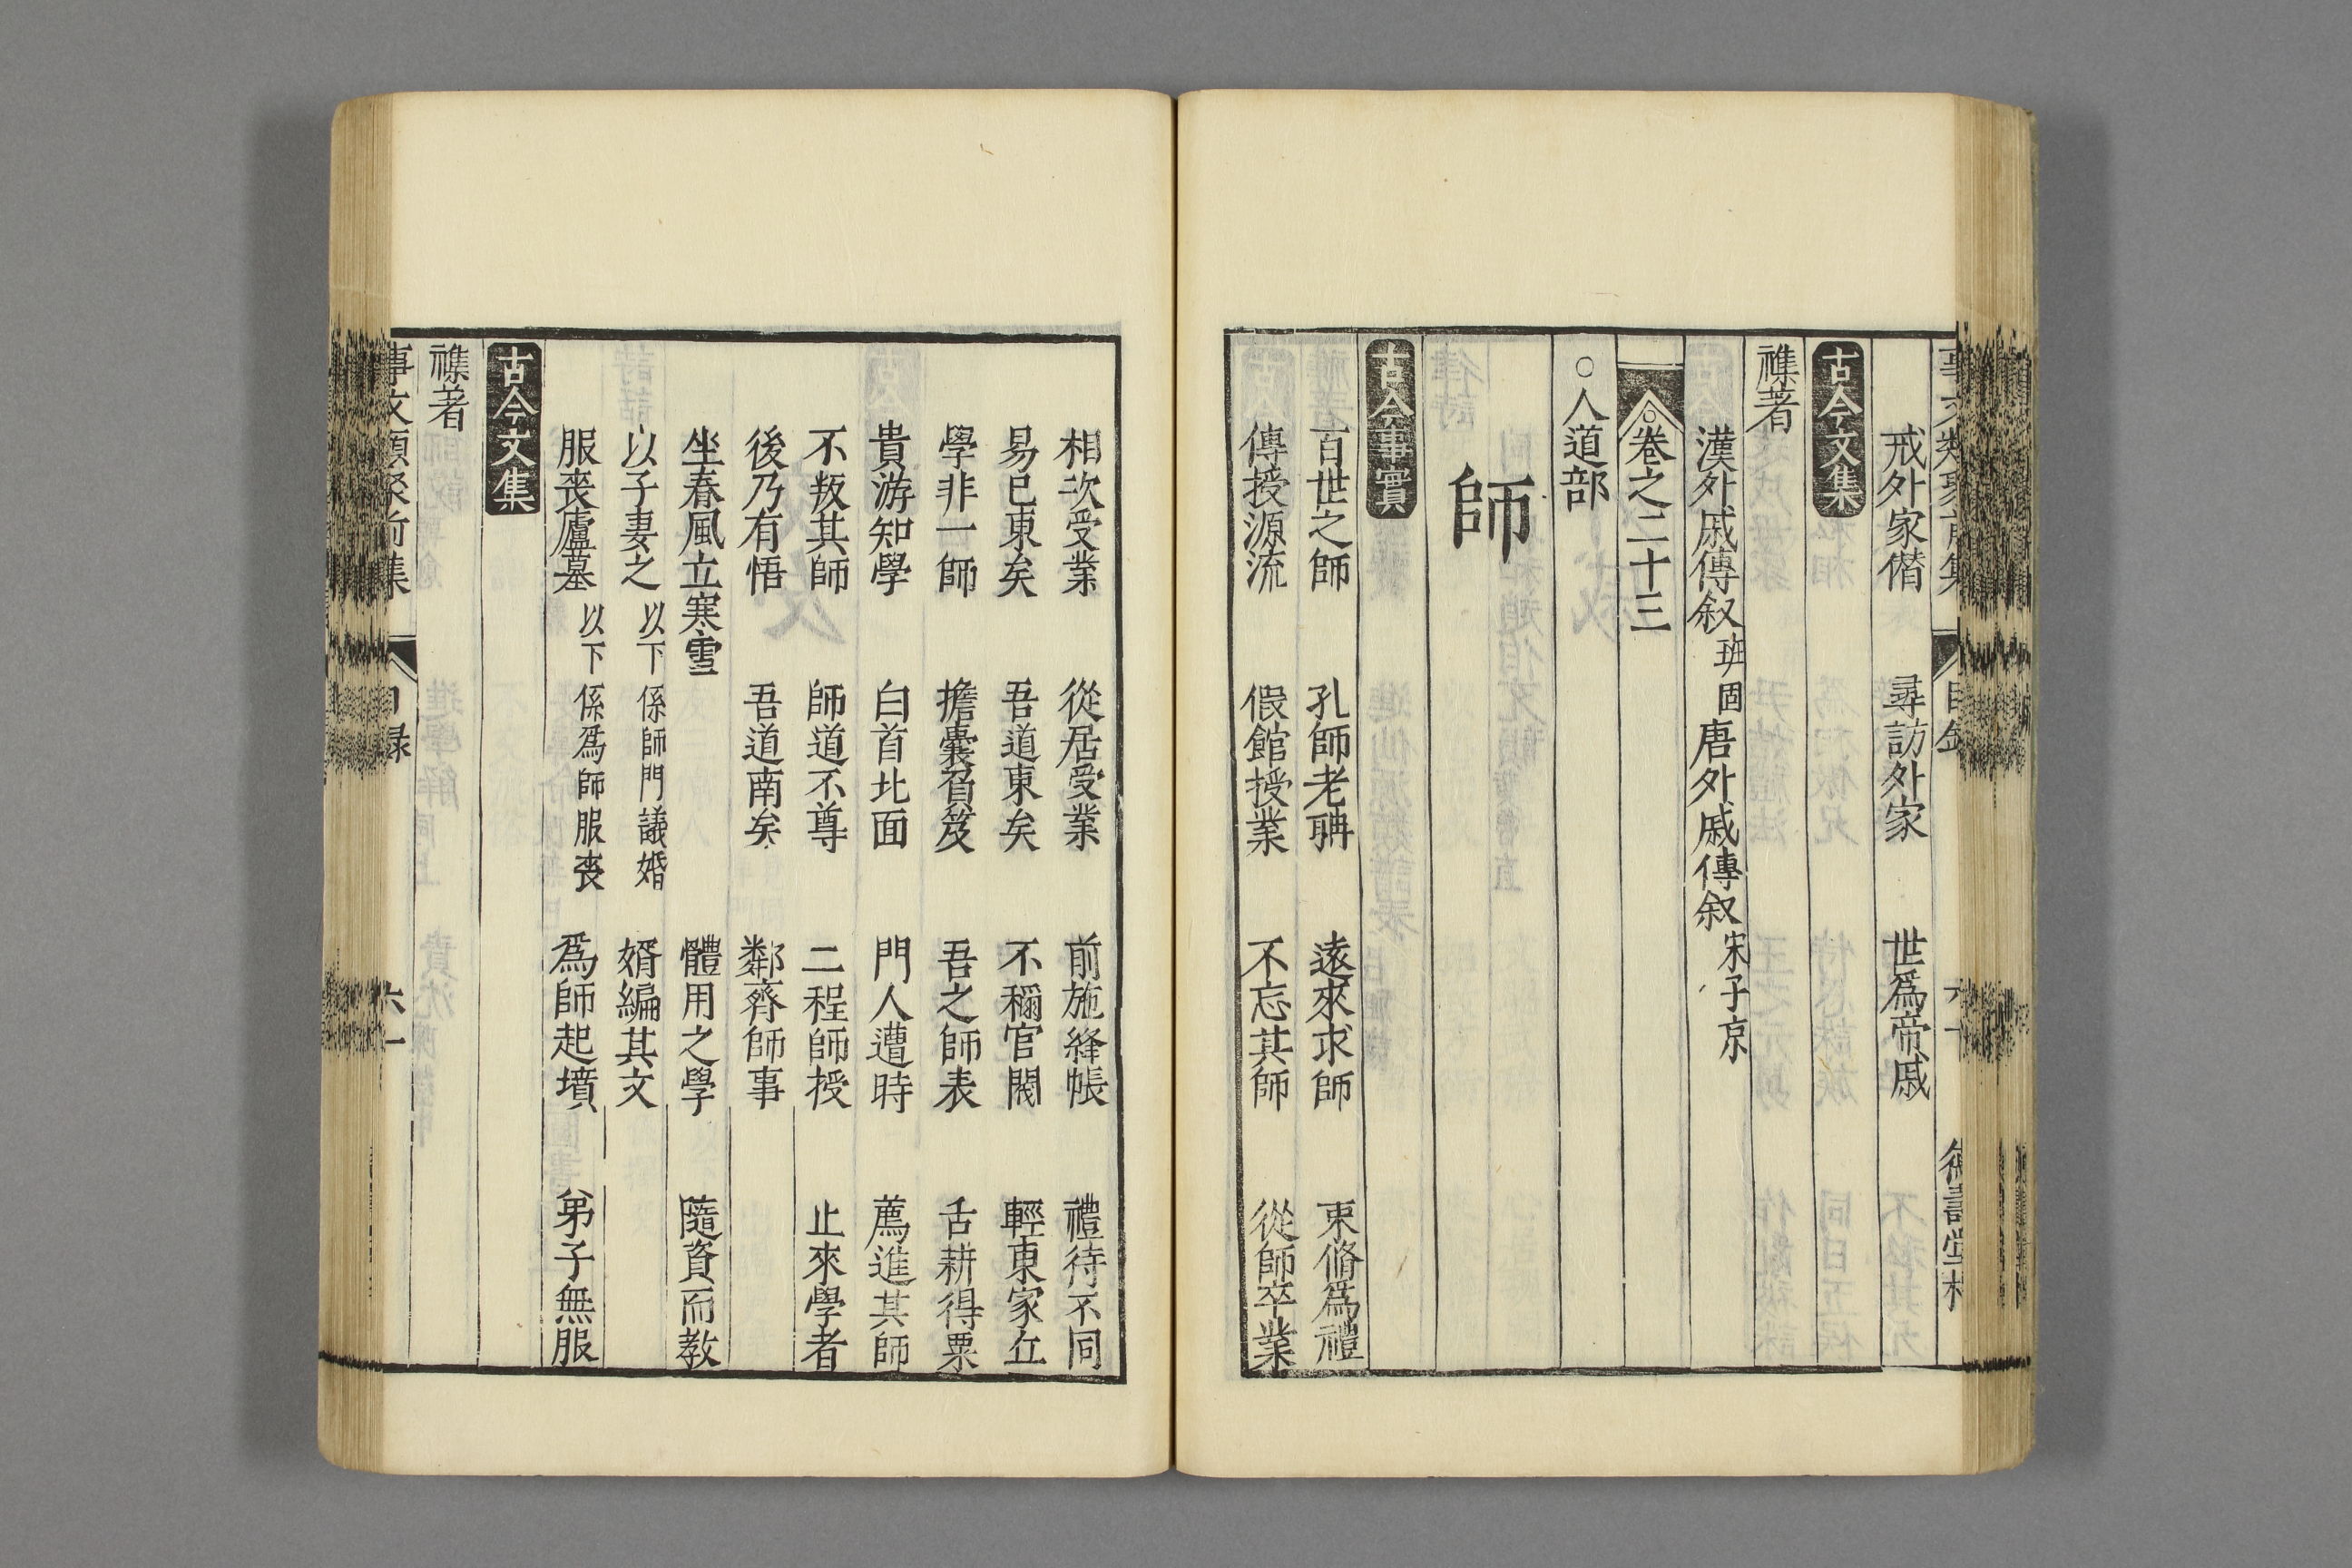 戒外家僣　尋訪外家　世爲帝戚
古今文集
襍著
漢外戚傳叙班固唐外戚傳叙宋子京
○卷之二十三
○人道部
師
古今事實
百世之師　孔師老聃　遠來求師　束脩爲禮
傳授源流　假館授業　不忘其師　從師卒業
相次受業　從居受業　前施絳帳　禮待不同
易已東矣　吾道東矣　不稱官閥　輕東家丘
學非一師　擔囊負笈　吾之師表　舌耕得粟
貴游知學　白首北面　門人遭時　薦進其師
不叛其師　師道不尊　二程師授　止來學者
後乃有悟　吾道南矣　鄰齊師事
坐春風立寒雪　體用之學　隨資而教
以子妻之以下係師門議婚　婿編其文
服喪廬墓以下係爲師服喪　爲師起墳　弟子無服
古今文集
襍著